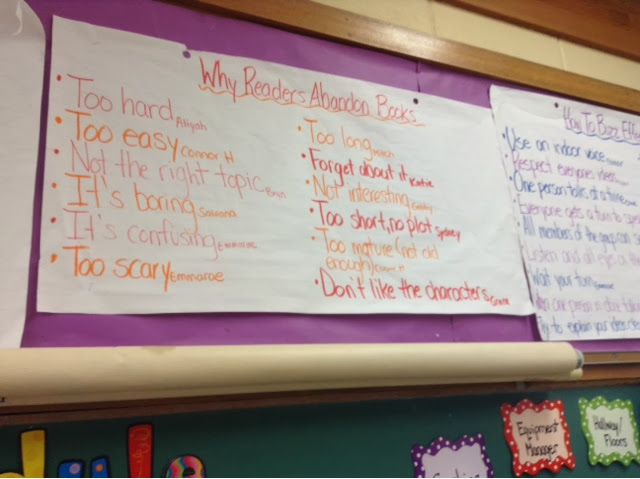 Why Readers Abandon Books
• Too hard Aliyah
• Too easy Connor H
• Not the right topic
• It's boring
• It's confusing Emmarae
• Too scary Emmarae
• Too long
• Forget about it
• Not interesting
• Too short, no plot Sydney
• Too mature (not old
enough) Connor H
• Don't like the characters
How To Buzz
• Use an indoor voice
• Respect everyones ideas
• One person talks at a time
• Everyone gets a turn to
• All members of the group can
• Listen and all eyes
• Wait your turn
• When one person is
• Try to explain your ideas
Equipment
Manager
Hallway/
Floors